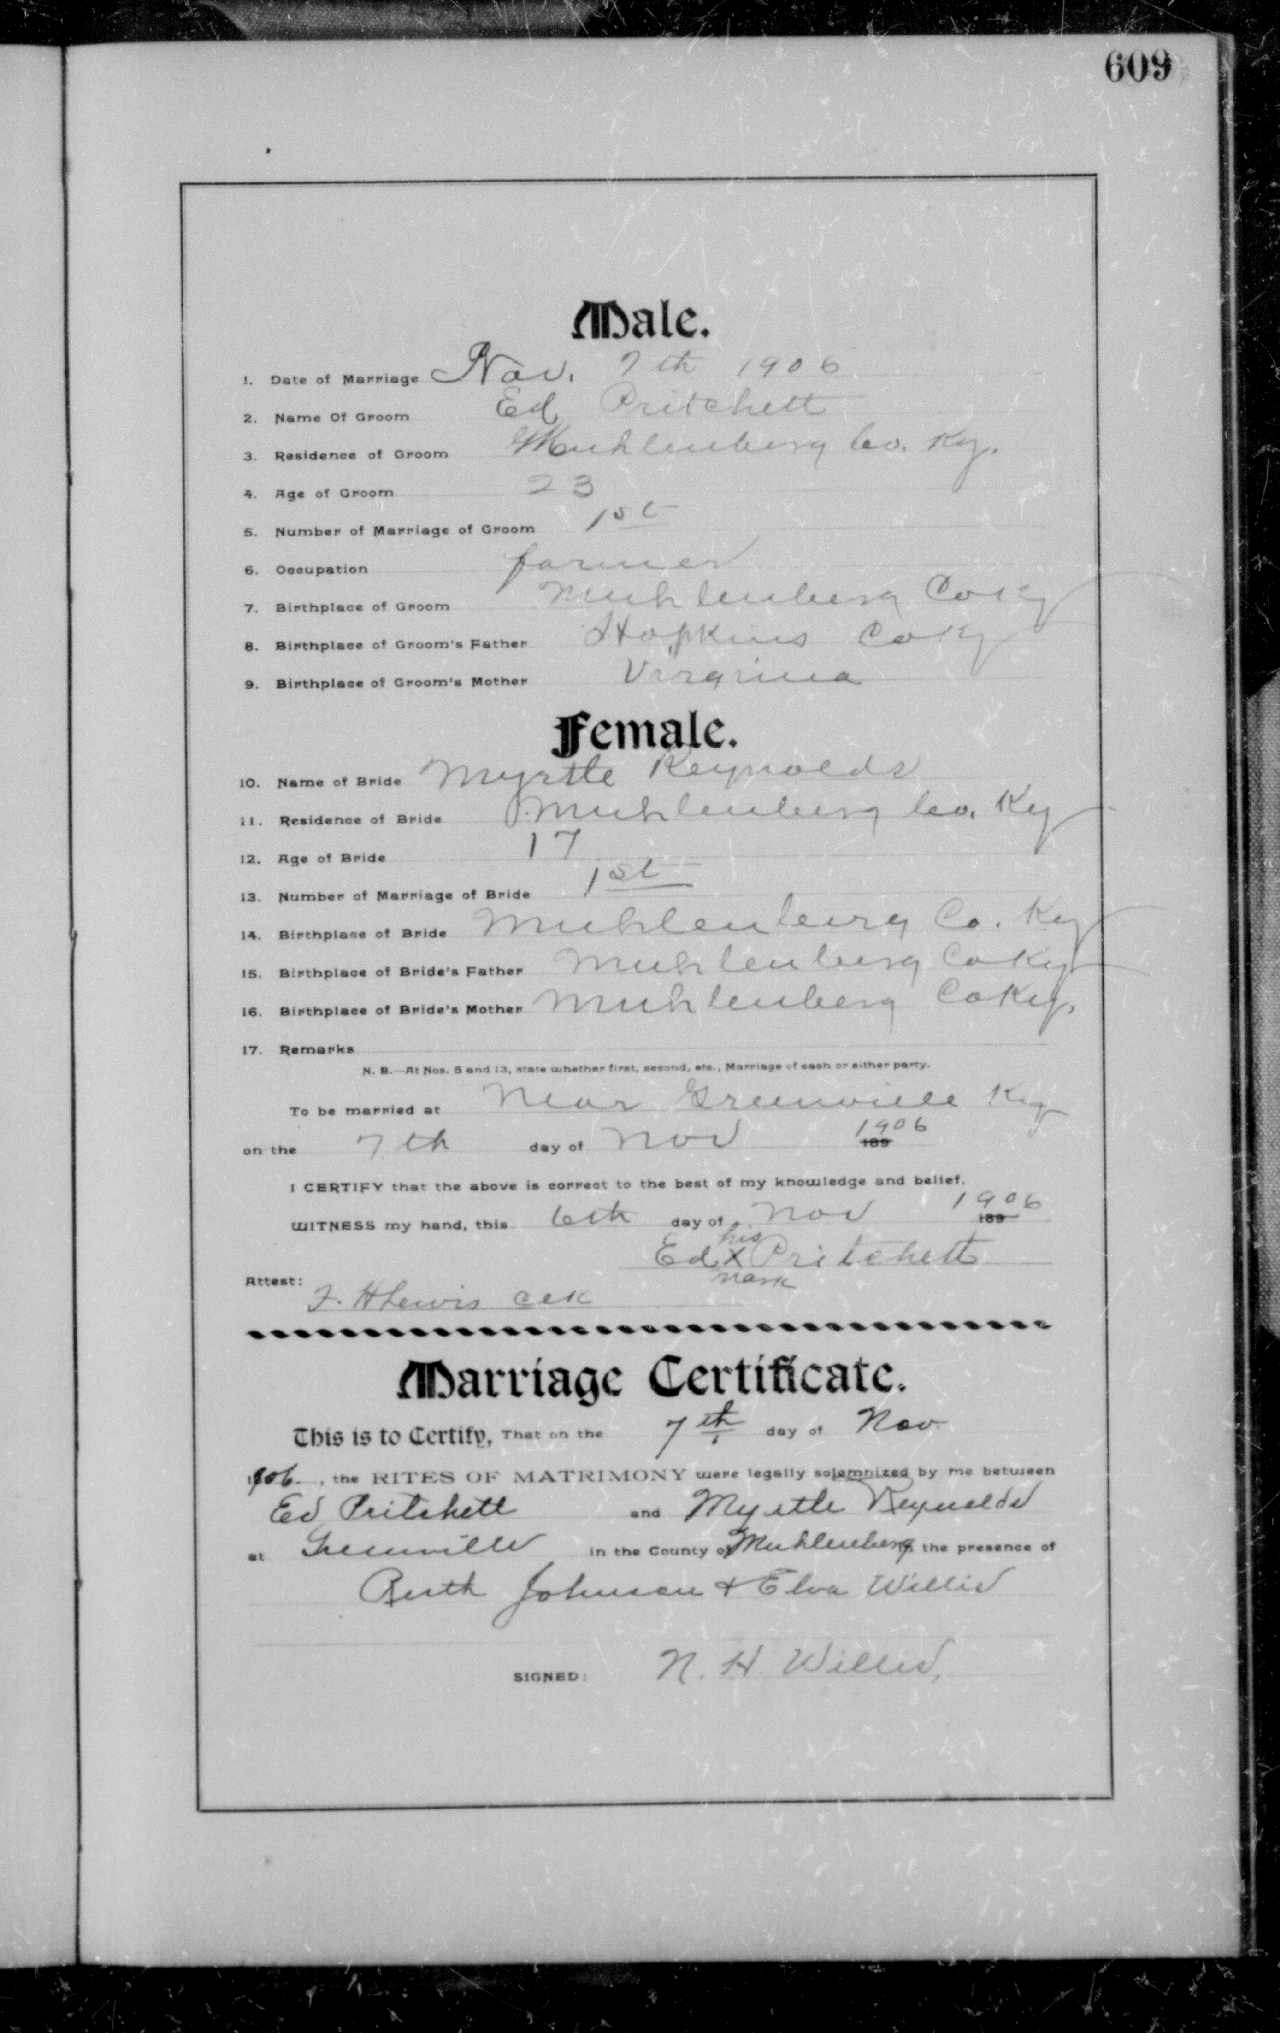 609
Male.
1. Date of Marriage Nov. 7th 1906
2. Name Of Groom Ed Pritchett
3. Residence of Groom Muhlenberg Co. Ky.
4. Age of Groom 23
5. Number of Marriage of Groom 1st
6. Occupation farmer
7. Birthplace of Groom Muhlenberg Co Ky
8. Birthplace of Groom's Father Hopkins Co Ky
9. Birthplace of Groom's Mother Virginia
Female.
10. Name of Bride Myrtle Reynolds
11. Residence of Bride Muhlenberg Co. Ky
12. Age of Bride 17
13. Number of Marriage of Bride 1st
14. Birthplace of Bride Muhlenberg Co. Ky
15. Birthplace of Bride's Father Muhlenberg Co Ky
16. Birthplace of Bride's Mother Muhlenberg Co Ky.
17. Remarks
N. B.—At Nos. 5 and 13, state whether first, second, etc., Marriage of each or either party.
To be married at Near Greenville Ky
on the 7th day of Nov 189 1906
I CERTIFY that the above is correct to the best of my knowledge and belief.
WITNESS my hand, this 6th day of Nov 189 1906
his
Ed X Pritchett
mark
Attest:
F. H Lewis Clk
Marriage Certificate.
This is to Certify, That on the 7th day of Nov
1906, the RITES OF MATRIMONY were legally solemnized by me between
Ed Pritchett and Myrtle Reynolds
at Greenville in the County of Muhlenberg in the presence of
Ruth Johnson & Elva Willis
SIGNED: N. H. Willis.